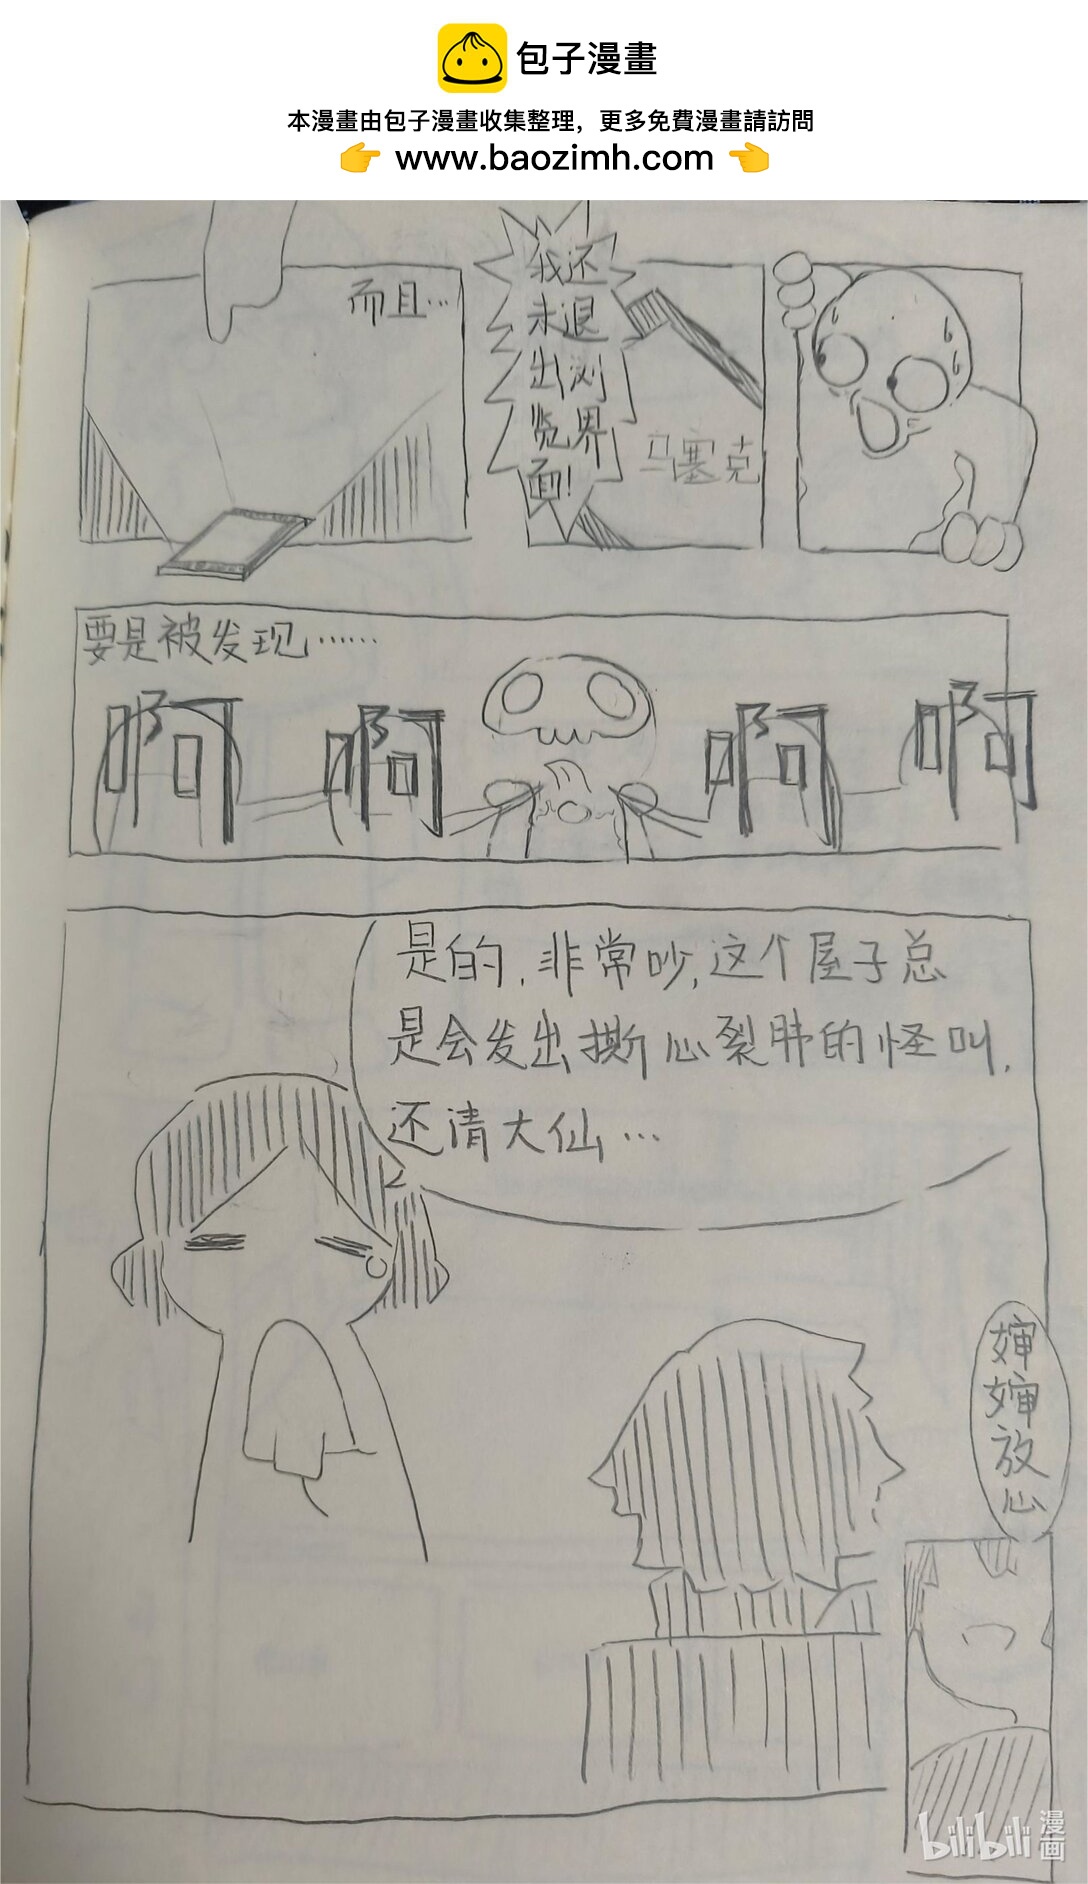 包子漫畫
本漫畫由包子漫畫收集整理，更多免費漫畫請訪問
www.baozimh.com
而且…
我还
未退
出浏
览界
面!
马塞克
要是被发现……
啊 啊 啊 啊
是的，非常吵，这个屋子总
是会发出撕心裂肺的怪叫，
还清大仙…
婶
婶
放
心
bilibili 漫画